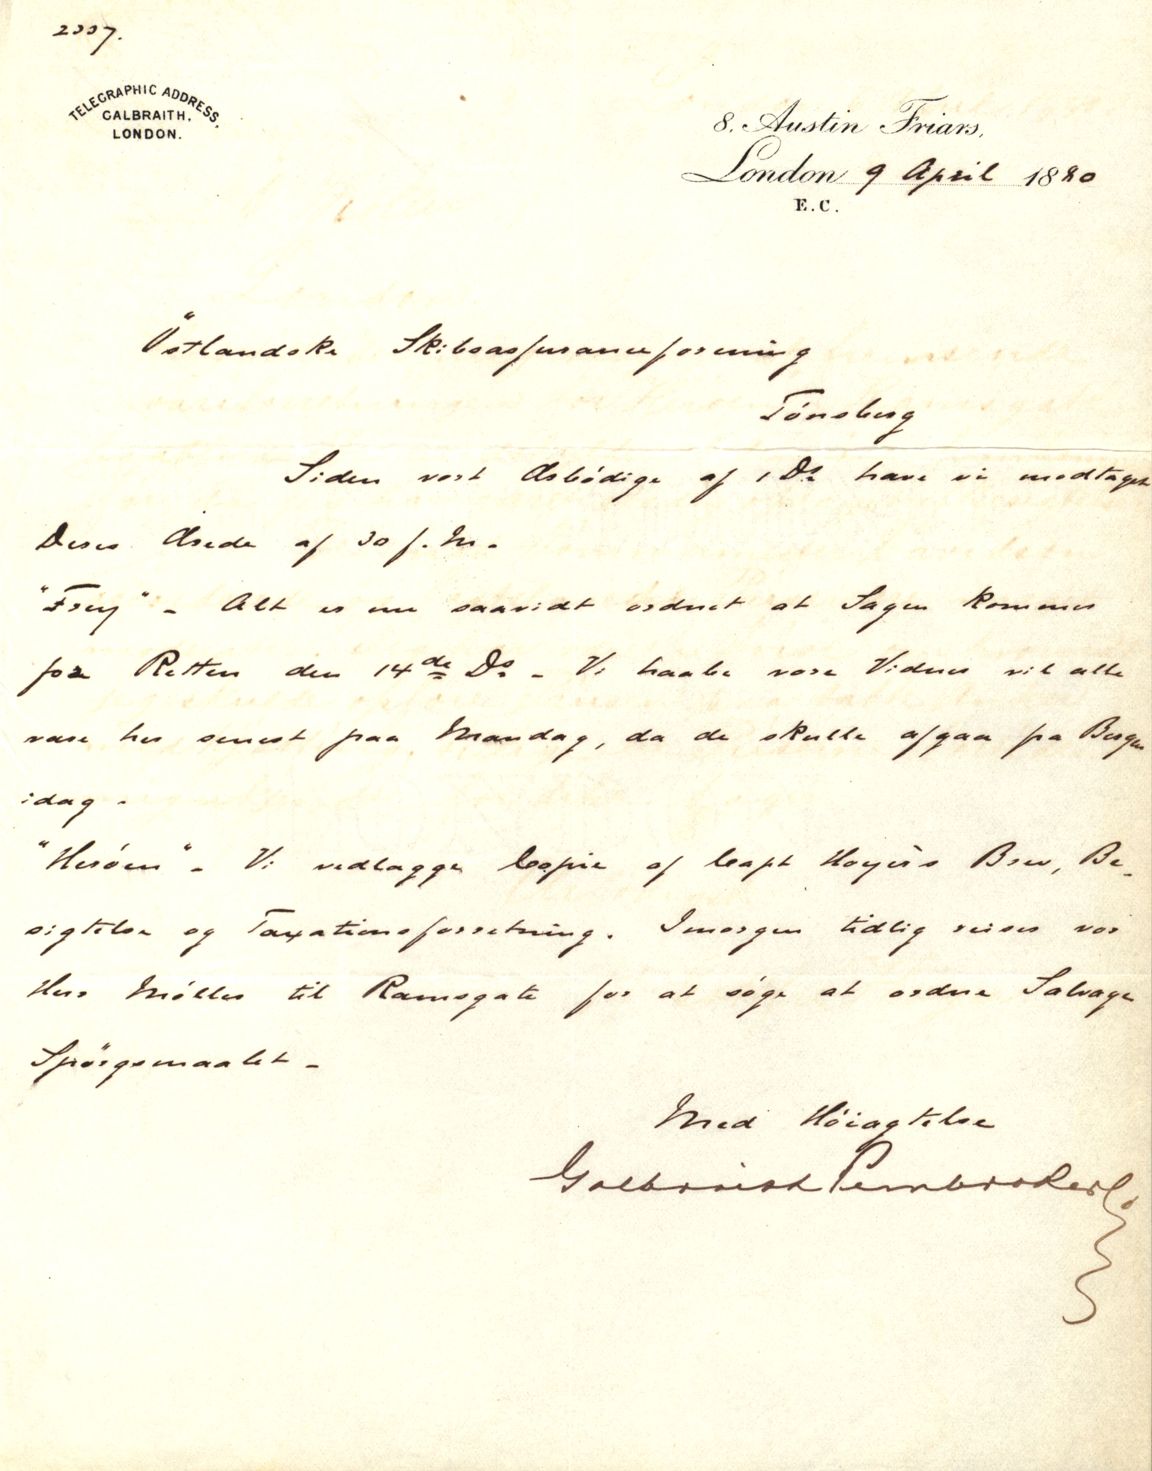 2337.
TELEGRAPHIC ADDRESS.
GALBRAITH.
LONDON.
8. Austin Friars.
London 9 April 1880
E.C.
Östlandske Skibsassuranceforening
Tönsberg
Siden vort Ærbödige af 1 Ds. have vi modtaget
Deres Ærede af 30 f. M.
"Frey" - Alt er nu saavidt ordnet at Sagen kommer
for Retten den 14de Ds. - Vi haabe vore Vidner vil alle
være her senest paa Mandag, da de skulle afgaa fra Bergen
idag.
"Heröen" - Vi vedlægge Copie af Capt Hoyers Brev, Be-
sigtelse og Taxationsforretning. Imorgen tidlig reiser vor
Herr Möller til Ramsgate for at söge at ordne Salvage
Spörgsmaalet -
Med Höiagtelse
Galbraith Pembroke & Co